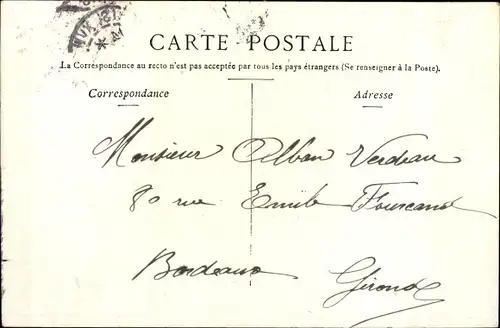 CARTE POSTALE
La Correspondance au recto n'est pas acceptée par tous les pays étrangers (Se renseigner à la Poste).
Correspondance Adresse
Monsieur Alban Verdeau
80 rue Emile Fourcand
Bordeaux Gironde